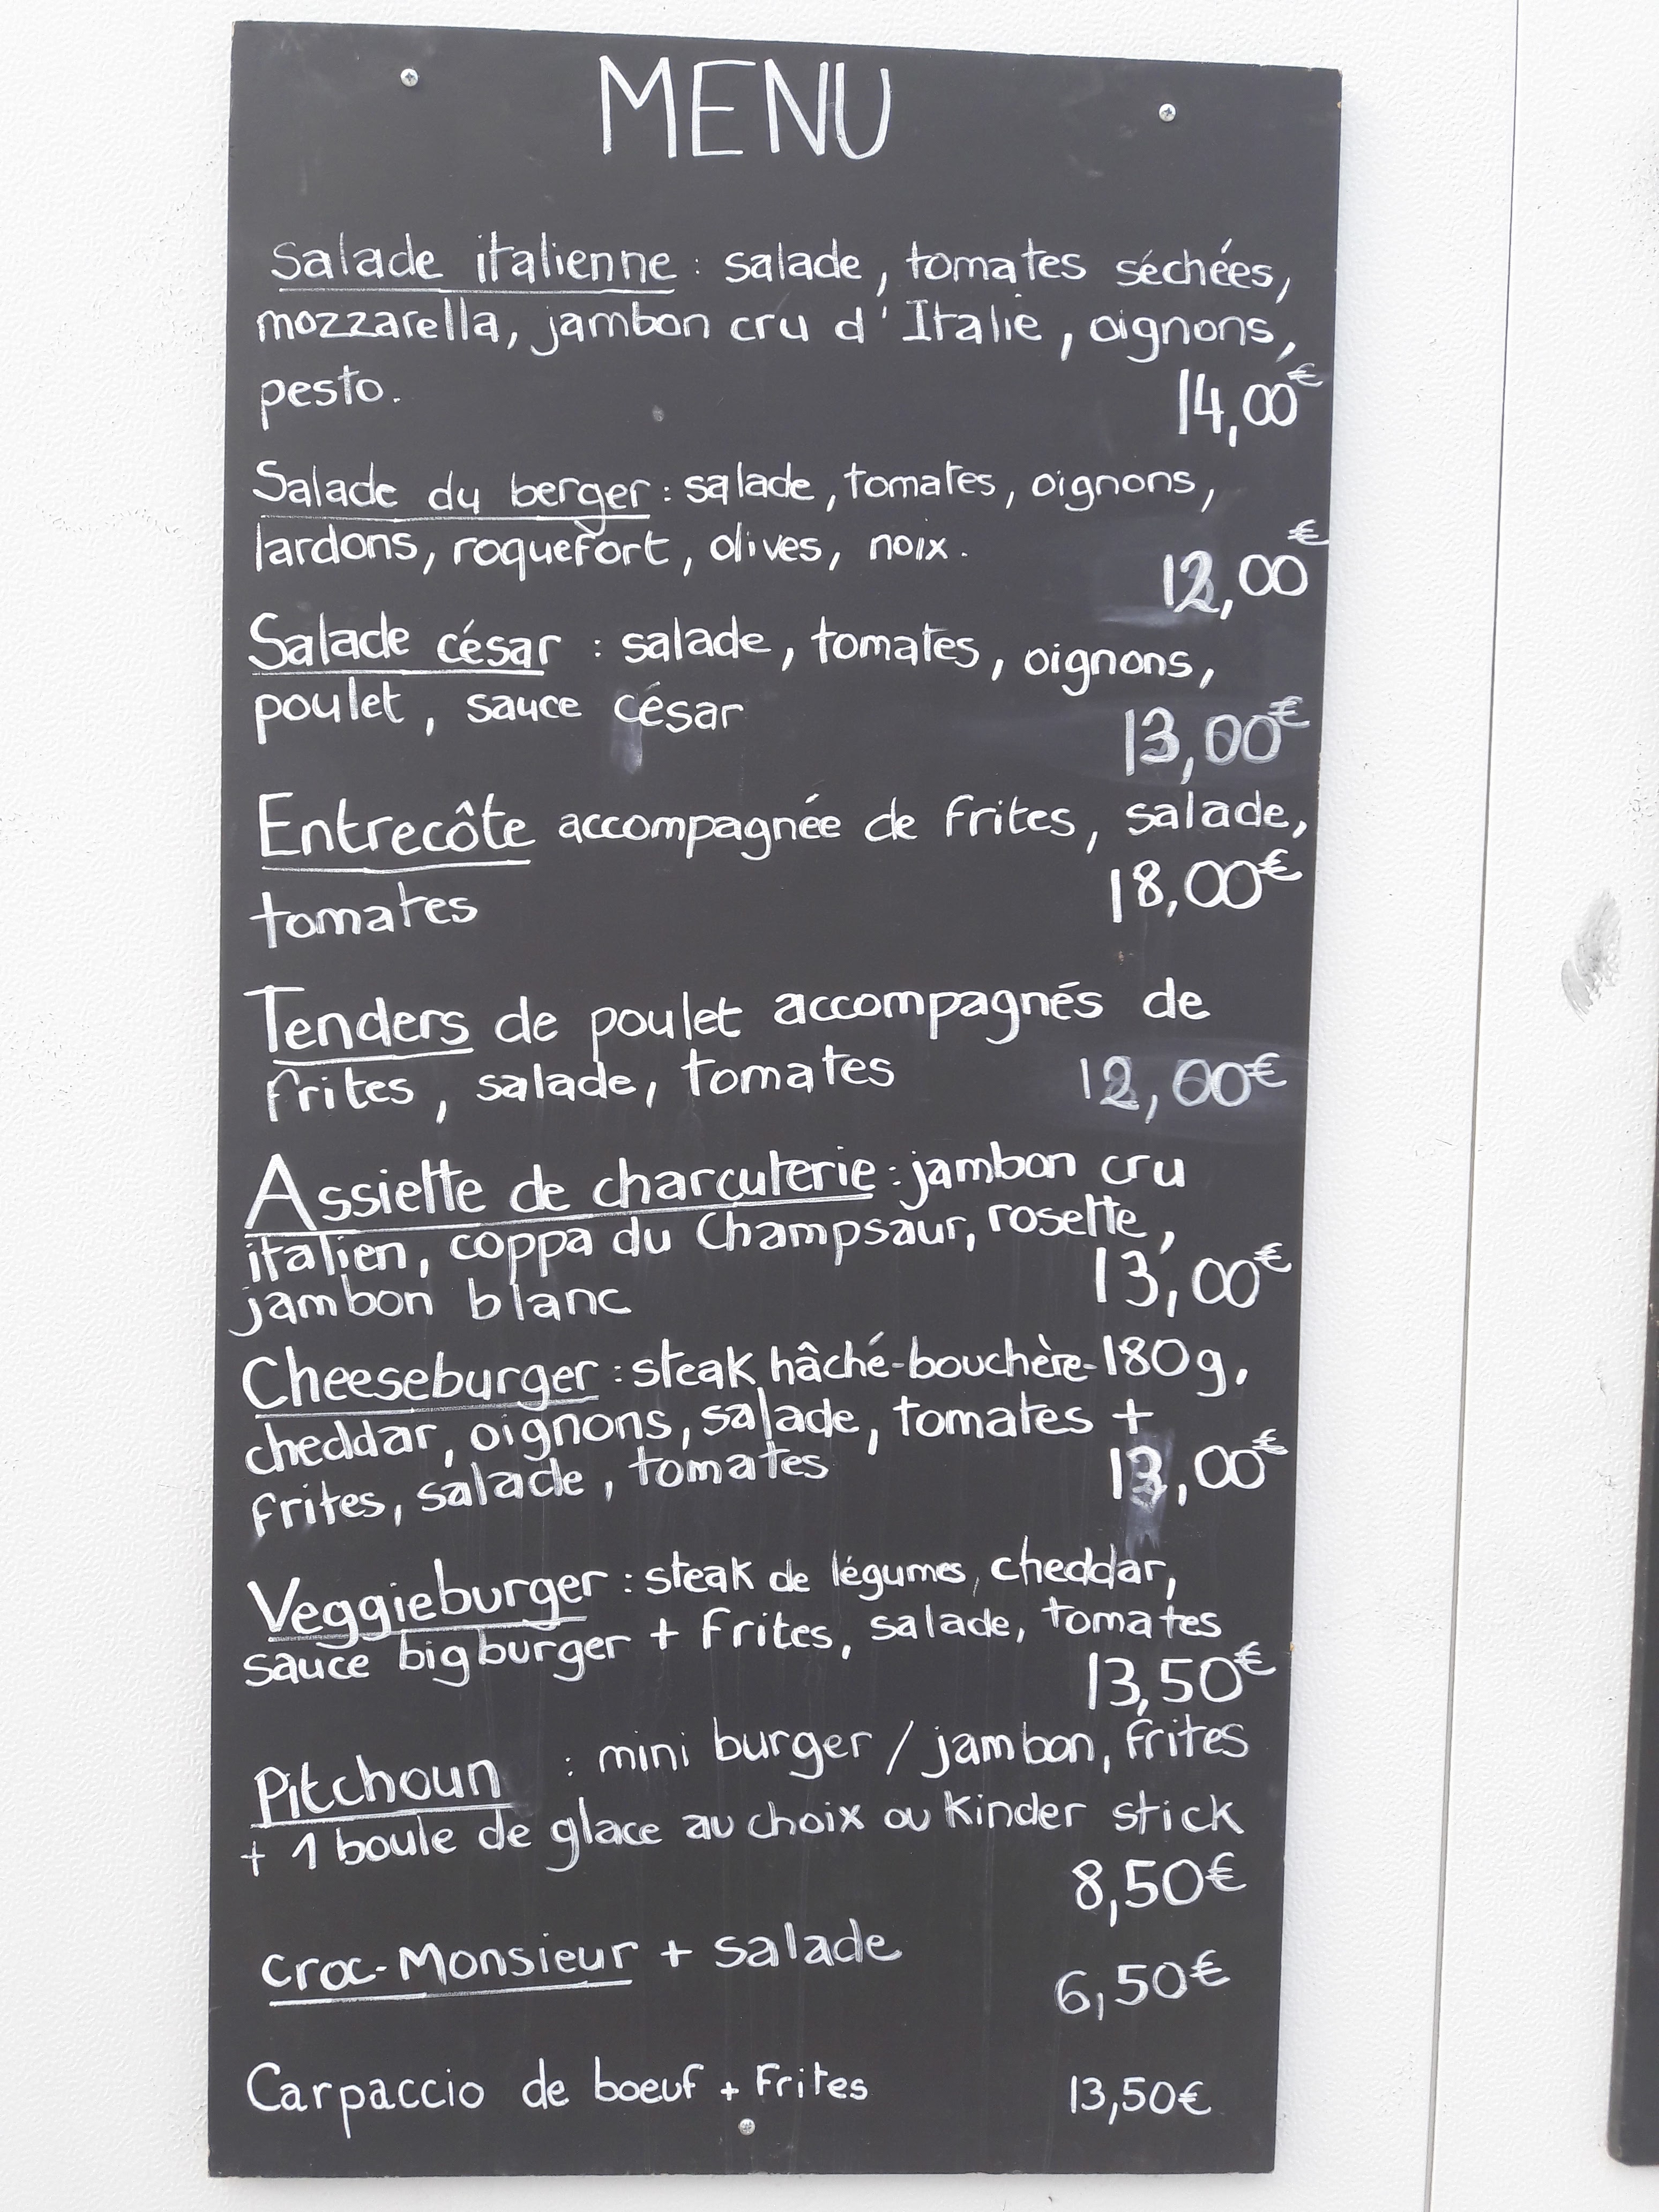 MENU
Salade italienne : salade, tomates séchées,
mozzarella, jambon cru d'Italie, oignons,
pesto. 14,00€
Salade du berger : salade, tomates, oignons,
lardons, roquefort, olives, noix. 12,00€
Salade césar : salade, tomates, oignons,
poulet, sauce césar 13,00€
Entrecôte accompagnée de frites, salade,
tomates 18,00€
Tenders de poulet accompagnés de
frites, salade, tomates 12,00€
Assiette de charcuterie : jambon cru
italien, coppa du Champsaur, rosette,
jambon blanc 13,00€
Cheeseburger : steak hâché-bouchère-180g,
cheddar, oignons, salade, tomates +
frites, salade, tomates 13,00€
Veggieburger : steak de légumes, cheddar,
sauce bigburger + frites, salade, tomates
13,50€
Pitchoun : mini burger / jambon, frites
+ 1 boule de glace au choix ou Kinder stick
8,50€
Croc-Monsieur + salade
6,50€
Carpaccio de boeuf + Frites 13,50€